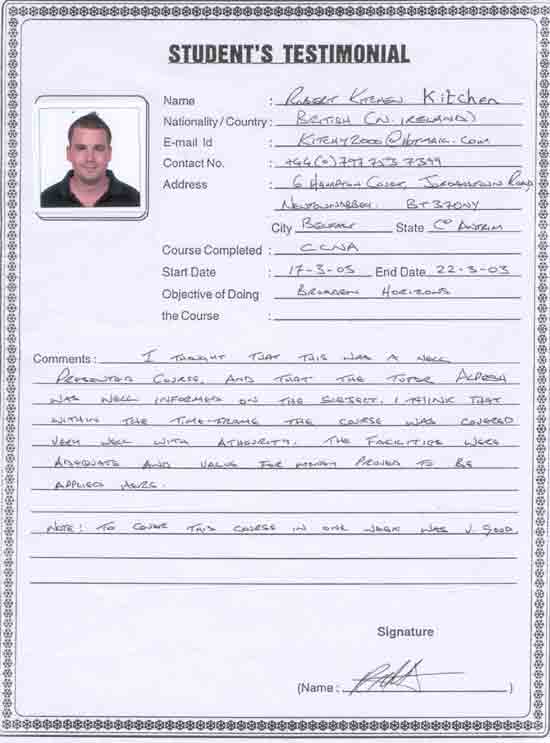 STUDENT'S TESTIMONIAL
Name : ROBERT KITCHEN Kitchen
Nationality / Country : BRITISH (N. IRELAND)
E-mail Id : KITCHY2000@HOTMAIL.COM
Contact No. : +44(0)797 753 7399
Address : 6 HAMPTON COURT, JORDANSTOWN ROAD
NEWTOWNABBEY. BT37 0NY
City BELFAST State Co ANTRIM
Course Completed : CCNA
Start Date : 17-3-03 End Date 22-3-03
Objective of Doing BROADEN HORIZONS
the Course :
Comments : I THOUGHT THAT THIS WAS A WELL
PRESENTED COURSE, AND THAT THE TUTOR ALPESH
WAS WELL INFORMED ON THE SUBJECT. I THINK THAT
WITHIN THE TIME-FRAME THE COURSE WAS COVERED
VERY WELL WITH ATHOURITY. THE FACILITIES WERE
ADEQUATE AND VALUE FOR MONEY PROVED TO BE
APPLIED HERE.
NOTE! TO COVER THIS COURSE IN ONE WEEK WAS V. GOOD.
Signature
(Name : )